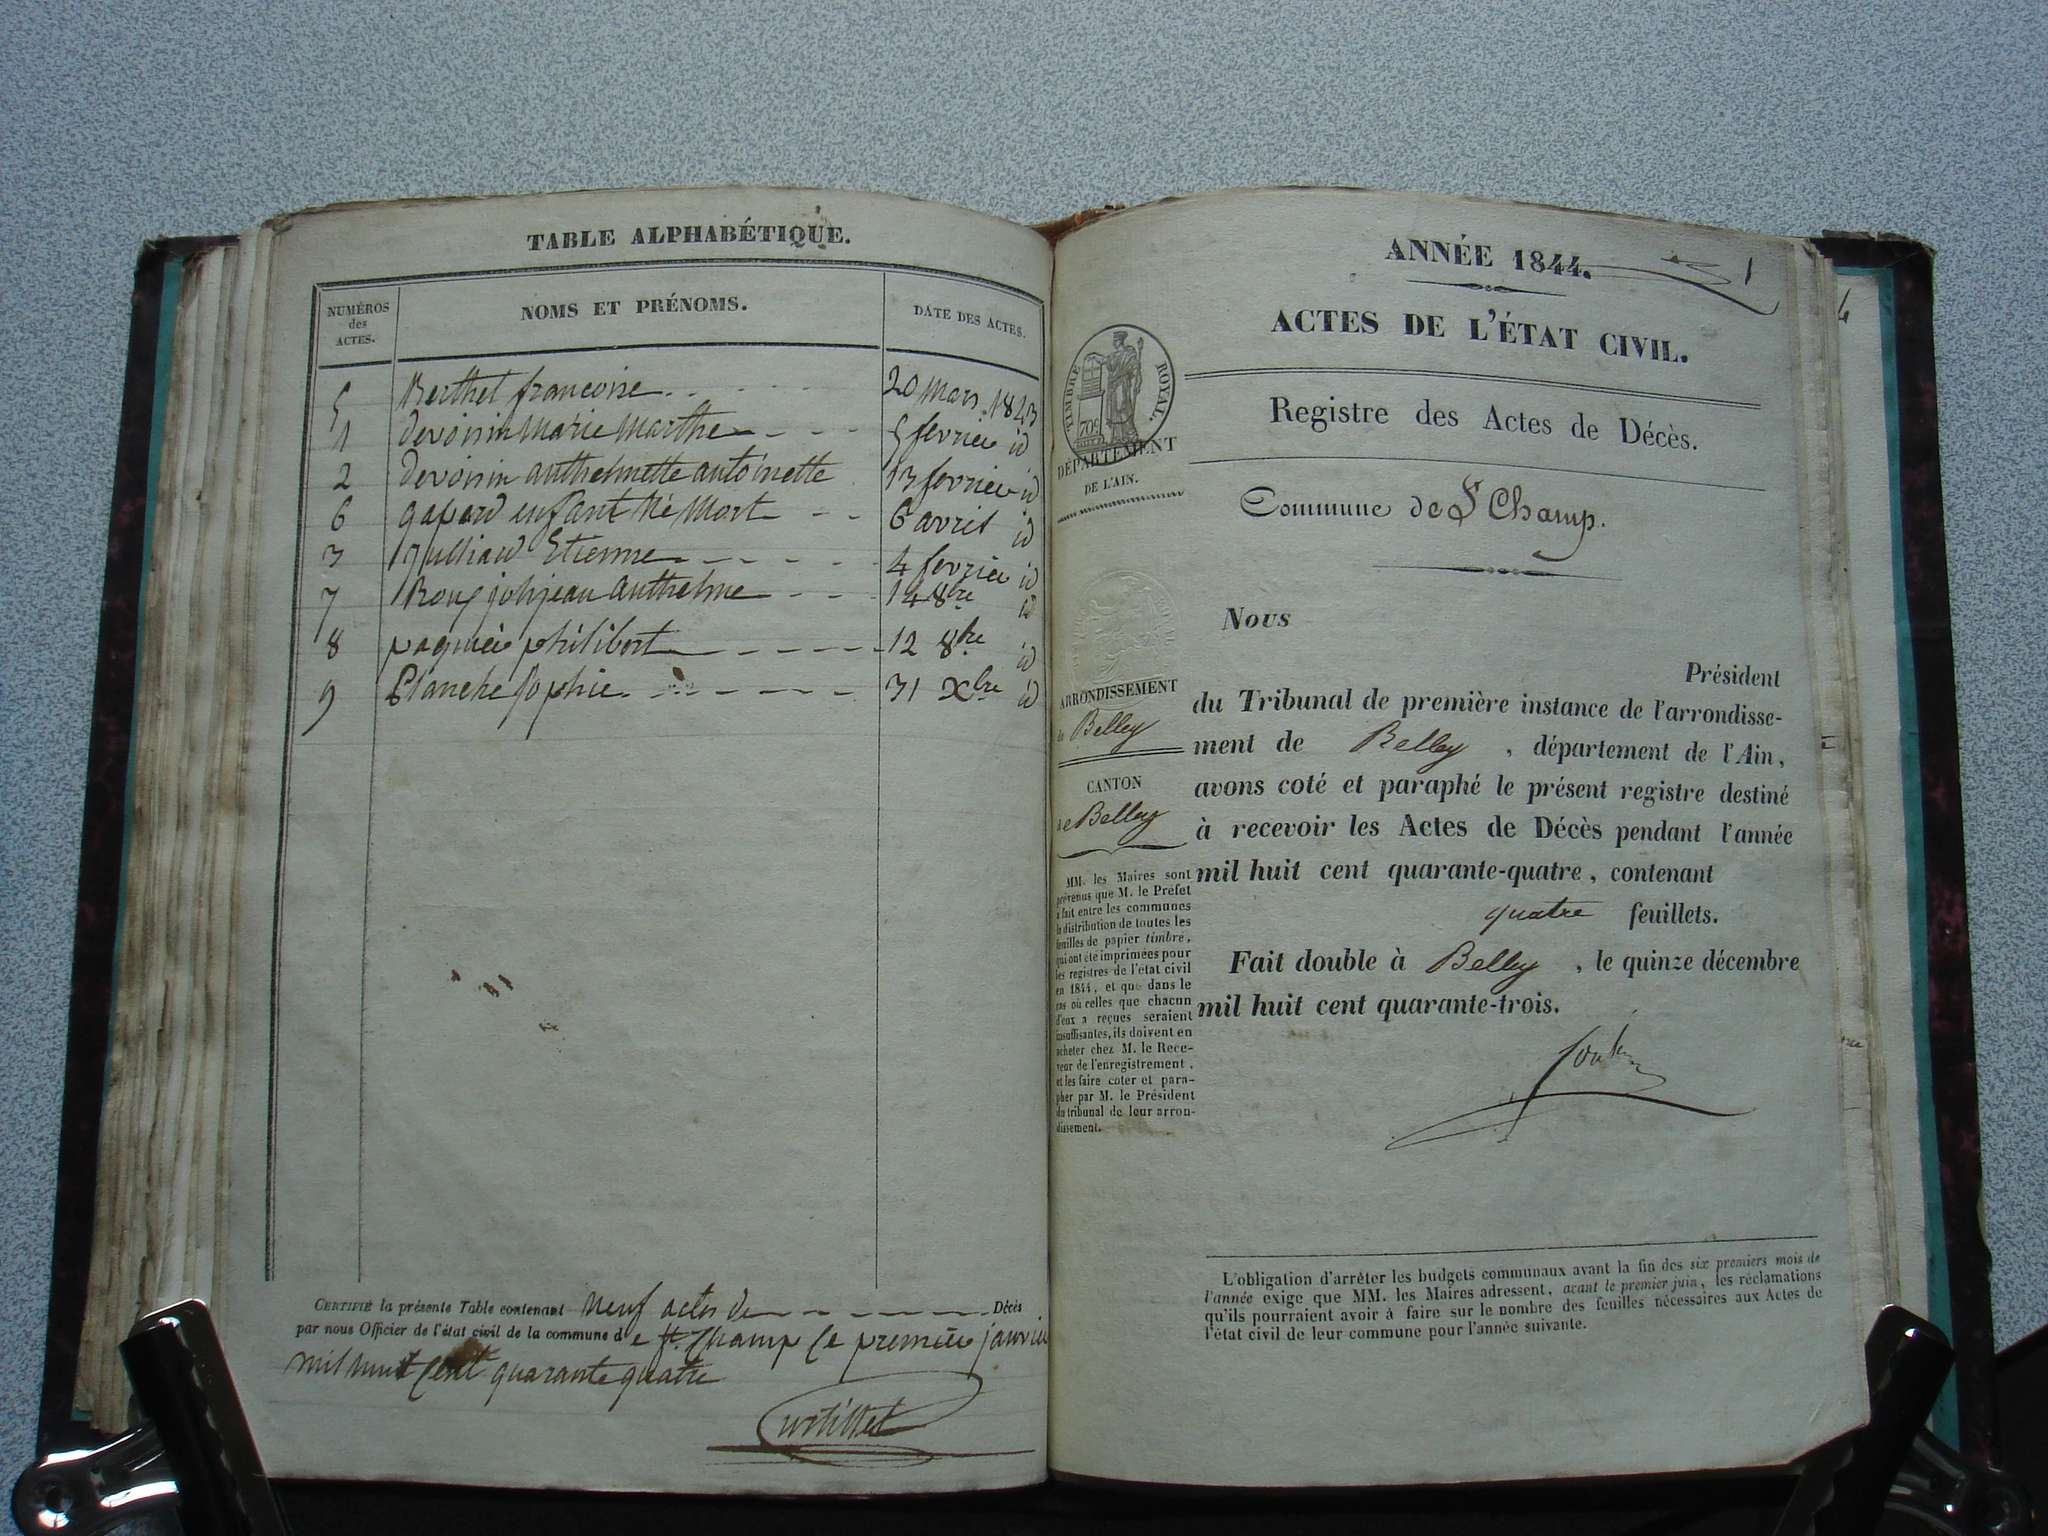 TABLE ALPHABÉTIQUE.
NUMÉROS des ACTES. NOMS ET PRÉNOMS. DATE DES ACTES.
5 Berthet francoise 20 mars 1843
1 devoisin Marie Marthe 5 fevrier id
2 devoisin anthelmette antoinette 13 fevrier id
6 enfant Né Mort 6 avril id
3 Etienne 4 fevrier id
7 anthelme 14 8bre id
8 philibert 12 8bre id
9 Planche Sophie 31 Xbre id
CERTIFIÉ la présente Table contenant neuf actes de Décès
par nous Officier de l'état civil de la commune de St. Champ le premier janvier
mil huit cent quarante quatre
Curtillet
ANNÉE 1844. 1
ACTES DE L'ÉTAT CIVIL.
TIMBRE ROYAL.
70c
Registre des Actes de Décès.
DÉPARTEMENT
DE L'AIN.
Commune de St Champ.
Nous
Président
du Tribunal de première instance de l'arrondisse-
ment de Belley, département de l'Ain,
avons coté et paraphé le présent registre destiné
à recevoir les Actes de Décès pendant l'année
mil huit cent quarante-quatre, contenant
quatre feuillets.
Fait double à Belley, le quinze décembre
mil huit cent quarante-trois.
ARRONDISSEMENT
de Belley
CANTON
de Belley
MM. les Maires sont
prévenus que M. le Préfet
a fait entre les communes
la distribution de toutes les
feuilles de papier timbré,
qui ont été imprimées pour
les registres de l'état civil
en 1844, et que dans le
cas où celles que chacun
d'eux a reçues seraient
insuffisantes, ils doivent en
acheter chez M. le Rece-
veur de l'enregistrement,
et les faire coter et para-
pher par M. le Président
du tribunal de leur arron-
dissement.
L'obligation d'arrêter les budgets communaux avant la fin des six premiers mois de
l'année exige que MM. les Maires adressent, avant le premier juin, les réclamations
qu'ils pourraient avoir à faire sur le nombre des feuilles nécessaires aux Actes de
l'état civil de leur commune pour l'année suivante.